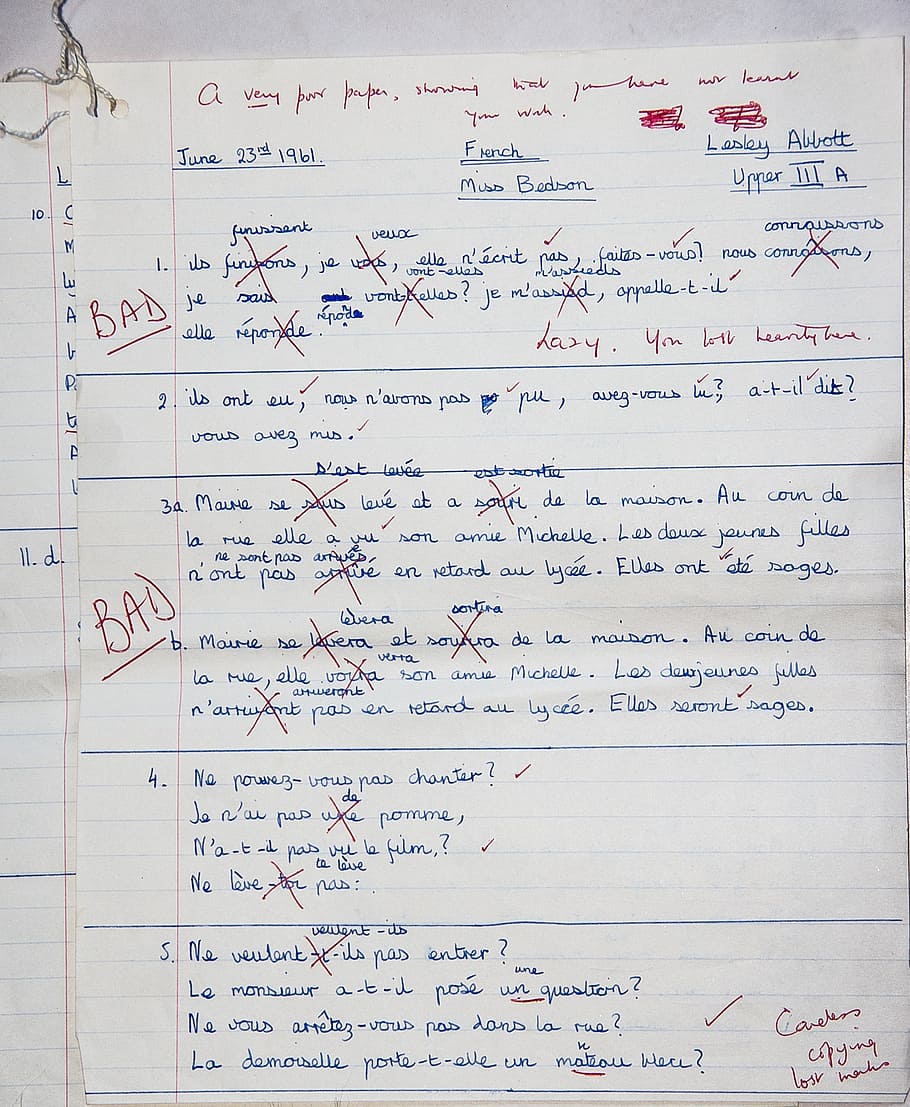 A very poor paper, showing that you have not learnt
your work.
June 23rd 1961.
French
Lesley Abbott
Miss Bedson
Upper III A
finissent veux connaissons
1. ils finissons, je vous, elle n'écrit pas, faites-vous? nous connaîsons,
vont-elles m'assieds
je sais vont-t-elles? je m'assied, appelle-t-il
BAD
réponde
elle réponde.
Lazy. You lost heavily here.
2. ils ont eu, nous n'avons pas pu, avez-vous lu? a-t-il dit?
vous avez mis.
s'est levée est sortie
3a. Mairie se levé et a de la maison. Au coin de
la rue elle a vu son amie Michelle. Les deux jeunes filles
ne sont pas arrivées
n'ont pas arrivé en retard au lycée. Elles ont été sages.
BAD
lèvera sortira
b. Mairie se levera et de la maison. Au coin de
verra
la rue, elle voira son amie Michelle. Les deuxjeunes filles
arriveront
n'arrivont pas en retard au lycée. Elles seront sages.
4. Ne pouvez-vous pas chanter?
de
Je n'ai pas une pomme,
N'a-t-il pas vu le film,?
te lève
Ne lève-toi pas:.
veulent-ils
5. Ne veulent-t-ils pas entrer?
une
Le monsieur a-t-il posé un question?
Ne vous arrêtez-vous pas dans la rue?
n
La demoiselle porte-t-elle un mateau bleu?
Careless
copying
lost marks
10.
11. d.